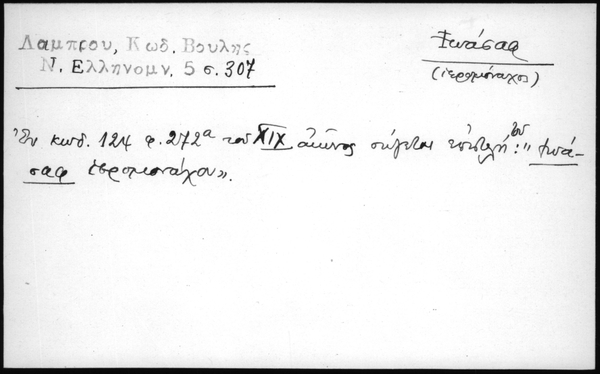 Λαμπρου, Κωδ. Βουλης
Ν. Ελληνομν. 5 σ. 307
Ἰωάσαφ
(ἱερομόναχος)
Ἐν κωδ. 124 φ. 272α του XIX αἰῶνος σώζεται ἐπιστολή του: "Ἰωά-
σαφ ἱερομονάχου».